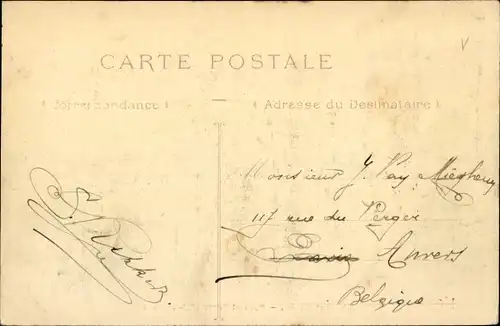 CARTE POSTALE
( Correspondance )
( Adresse du Destinataire )
Monsieur J. Van Mieghem
117 rue du Verger
Anvers
Belgique